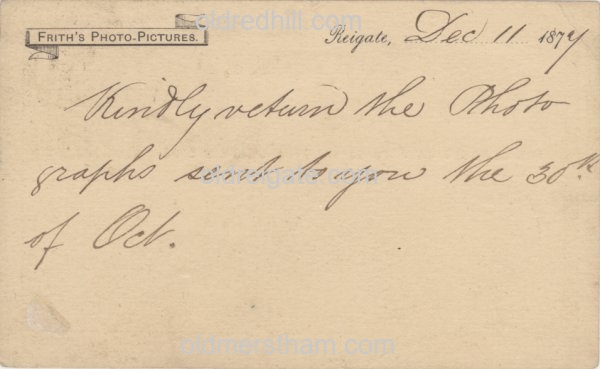 oldredhill.com
FRITH'S PHOTO-PICTURES.
Reigate, Dec 11 1879
Kindly return the Photo
graphs sent to you the 30th
oldreigate.com
of Oct.
oldmerstham.com